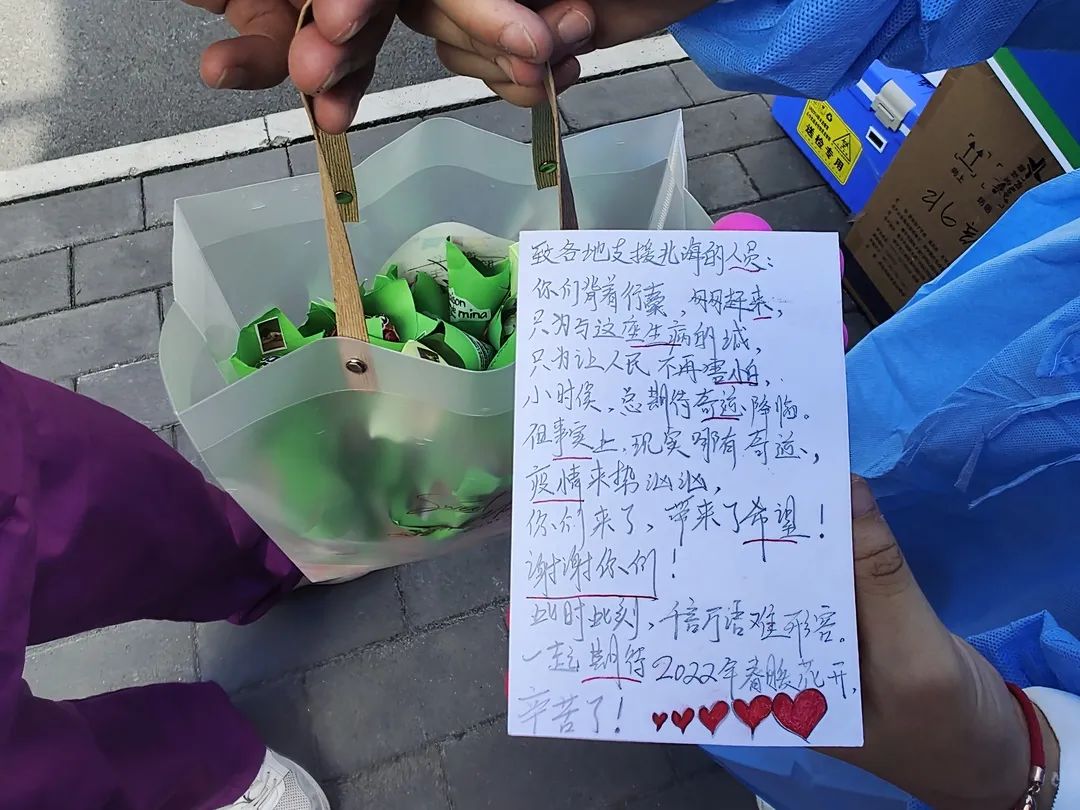 致各地支援北海的人员：
你们背着行囊，刚刚赶来，
只为与这座生病的城，
只为让人民不再害怕，
小时侯，总期待奇迹降临。
但事实上，现实哪有奇迹，
疫情来势汹汹，
你们来了，带来了希望！
谢谢你们！
此时此刻，千言万语难形容。
一起期待2022年春暖花开，
辛苦了！
mina
送检专用
向上
216